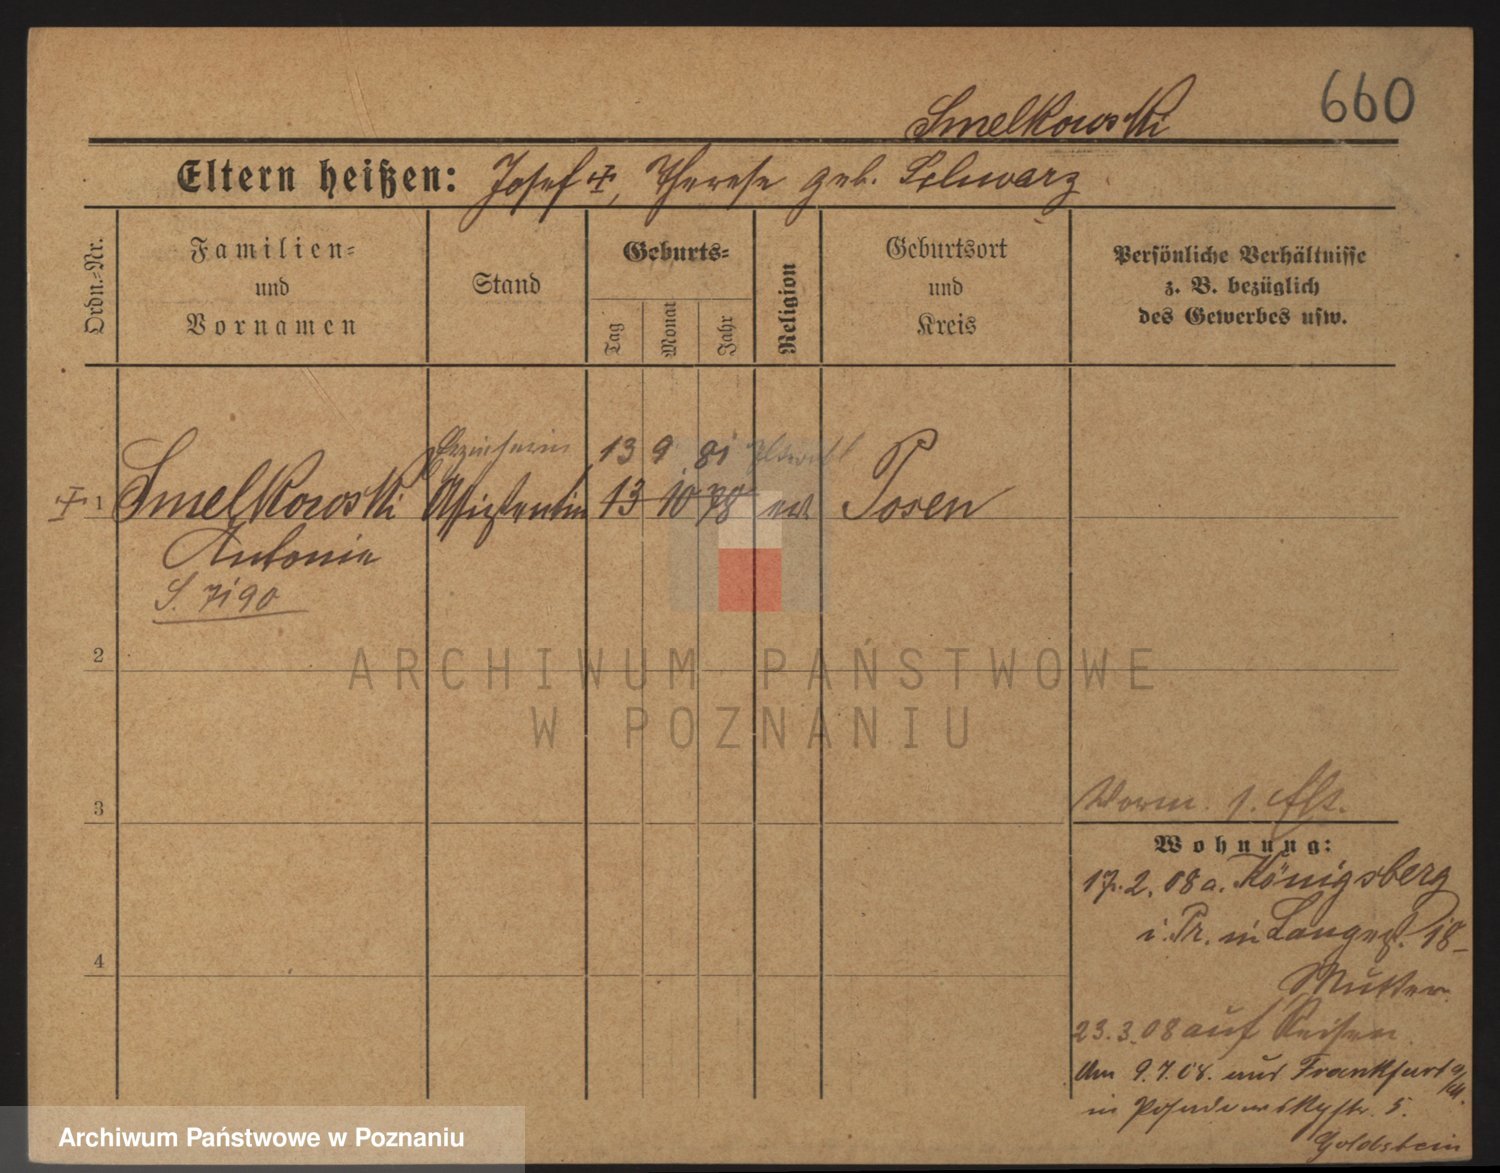 660
Smelkowski
Eltern heißen: Josef, Therese geb. Schwarz
Ordn.-Nr.
Familien-
und
Vornamen
Stand
Geburts-
Tag
Monat
Jahr
Religion
Geburtsort
und
Kreis
Persönliche Verhältnisse
z. B. bezüglich
des Gewerbes usw.
Erzieherin 13 9 81
1 Smelkowski Assistentin 13 10 78 ev Posen
Antonie
S. 7190
2
ARCHIWUM PAŃSTWOWE
W POZNANIU
3
Vorm. 1.
Wohnung:
17.2.08 a. Königsberg
i. Pr. in Langeg. 18-
Mutter
4
23.3.08 auf Reisen
Am 9.7.08. aus Frankfurt a/M.
in 5.
Goldstein
Archiwum Państwowe w Poznaniu